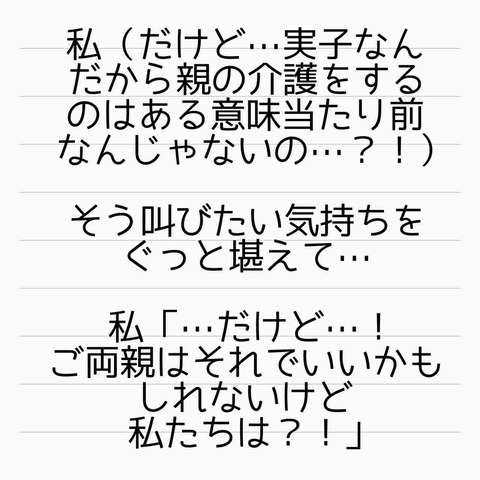 私（だけど…実子なん
だから親の介護をする
のはある意味当たり前
なんじゃないの…？！）
そう叫びたい気持ちを
ぐっと堪えて…
私「…だけど…！
ご両親はそれでいいかも
しれないけど
私たちは？！」